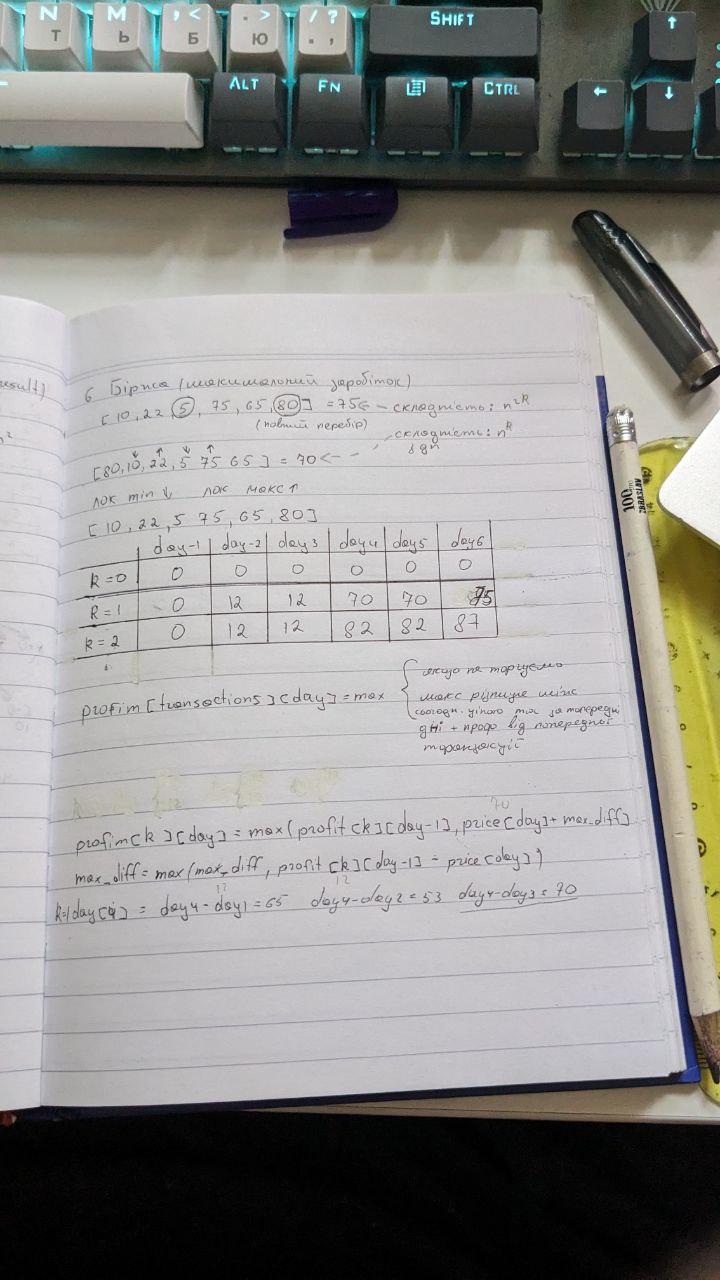 N
T
M
Ь
, <
Б
. >
Ю
/ ?
. ,
SHIFT
↑
ALT
FN
CTRL
←
↓
result)
6 Біржа (максимальний заробіток)
[10, 22 5, 75, 65, 80] = 75 ← складність: n^2k
(повний перебір)
складність: n^k
[80, 10, 22, 5 75 65] = 70 ←
лок min ↓ лок макс ↑
[10, 22, 5 75, 65, 80]
day-1 day-2 day 3 day 4 day 5 day 6
k=0 0 0 0 0 0 0
k=1 0 12 12 70 70 75
k=2 0 12 12 82 82 87
profim [transactions][day] = max
якщо не торгуємо
макс різниця між
сьогодн. ціною та за попередні
дні + профіт від попередньої
транзакції
70
profim[k][day] = max(profit[k][day-1], price[day] + max_diff)
max_diff = max(max_diff, profit[k][day-1] - price[day])
12 12
k=1 day[4] = day4-day1=65 day4-day2=53 day4-day3=70
100
ZBRASLAV